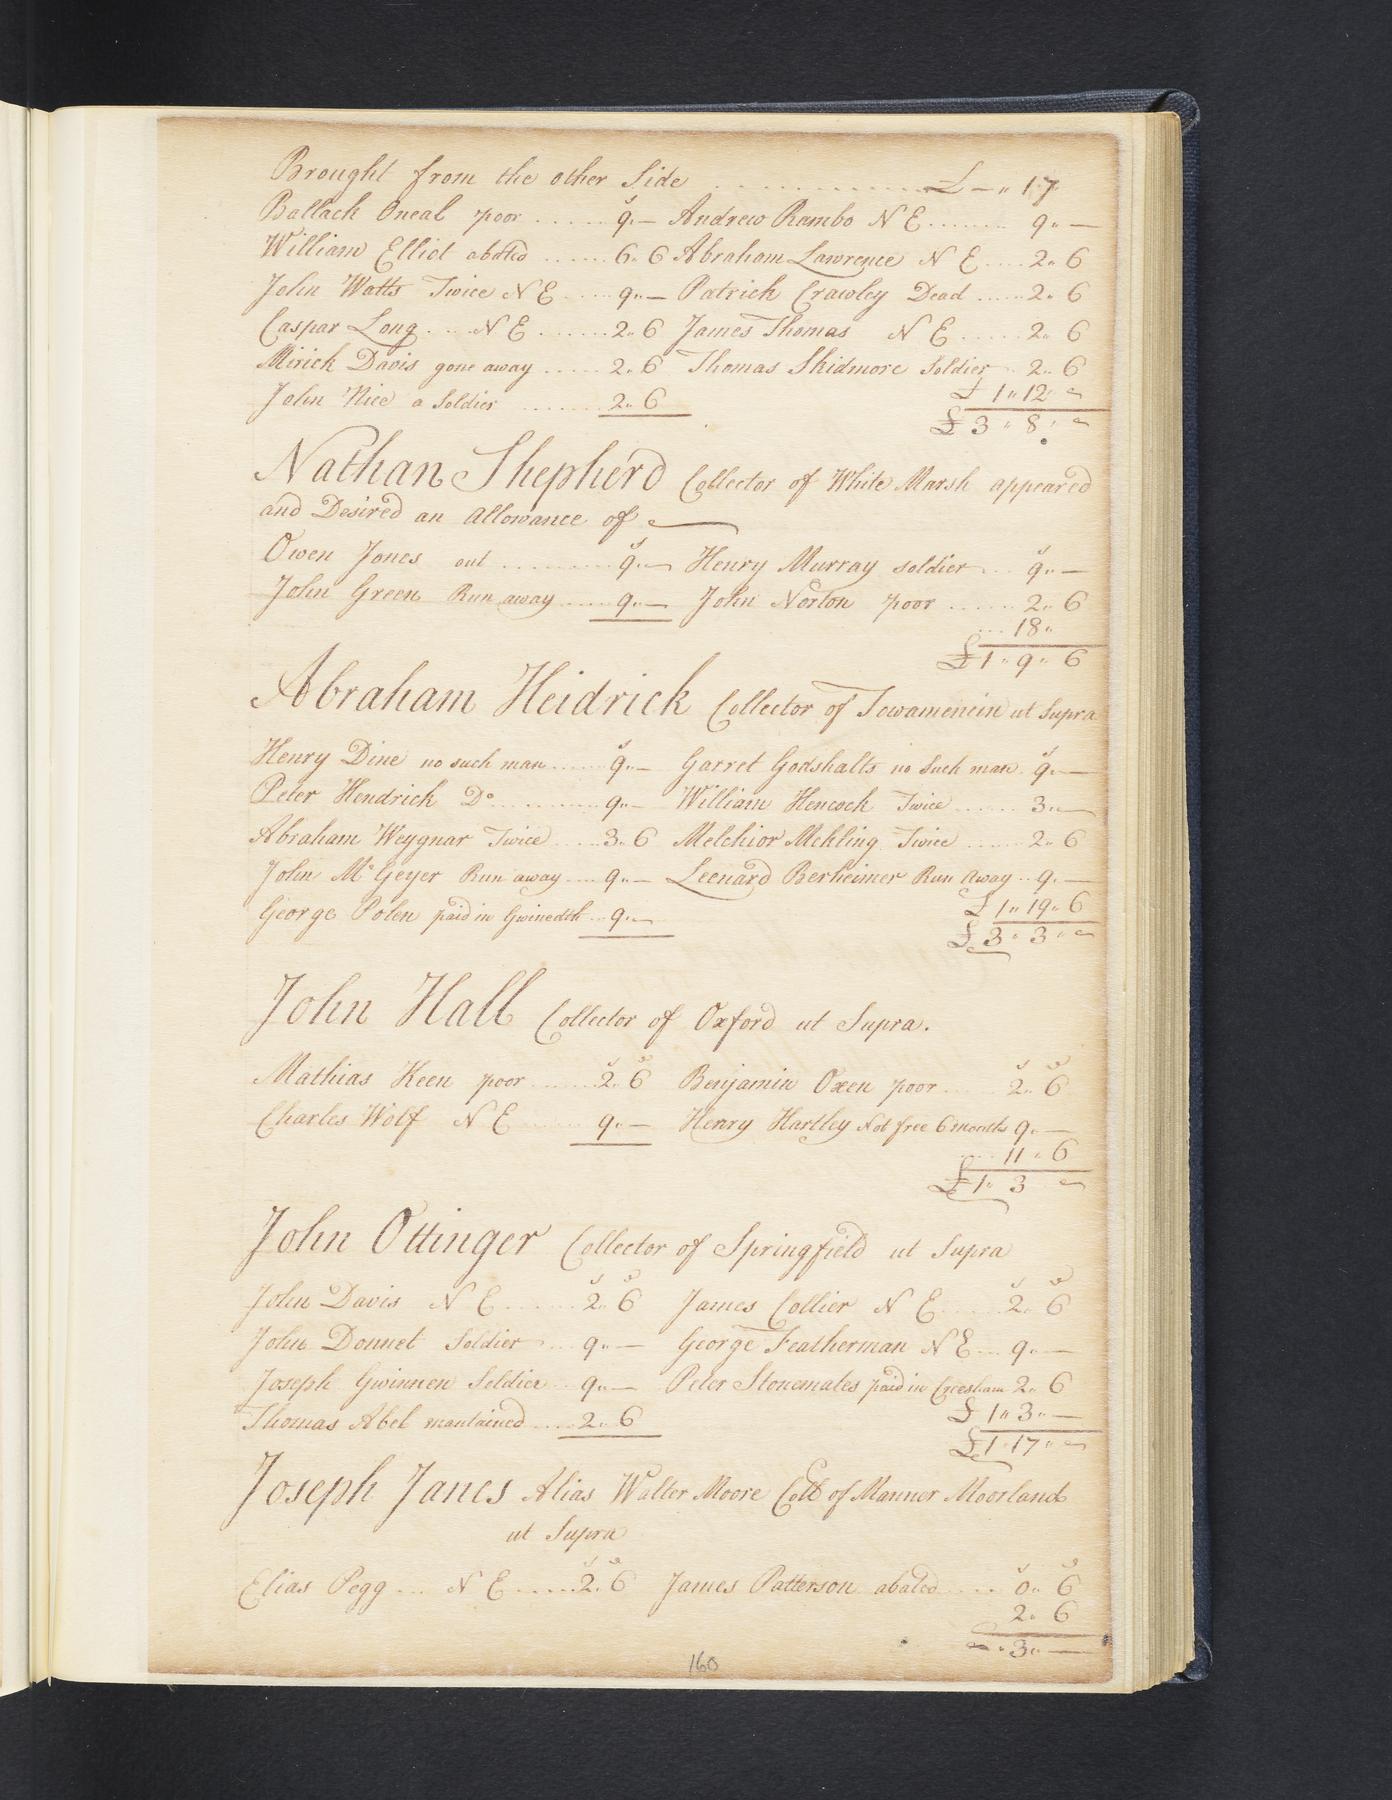 Brought from the other Side . . . . . . . . . . . . . £ — " 17
Ballach Oneal poor . . . . . . 9 " — Andrew Rambo N E . . . . . . . 9 " —
William Elliot abated . . . . . . 6 " 6 Abraham Lawrence N E . . . . 2 " 6
John Watts Twice N E . . . . . 9 " — Patrick Crawley Dead . . . . . 2 " 6
Caspar Long . . . . N E . . . . . . . 2 " 6 James Thomas N E . . . . . 2 " 6
Mirick Davis gone away . . . . . 2 " 6 Thomas Skidmore Soldier . . 2 " 6
£ 1 " 12 " —
John Nice a Soldier . . . . . . . 2 " 6
£ 3 " 8 " —
Nathan Shepherd Collector of White Marsh appeared
and Desired an allowance of —
Owen Jones out . . . . . . . . . 9 " — Henry Murray soldier . . . 9 " —
John Green Run away . . . . . 9 " — John Norton poor . . . . . . 2 " 6
. . . . 18 "
£ 1 " 9 " 6
Abraham Heidrick Collector of Towamencin ut Supra
Henry Dine no such man . . . . . . 9 " — Garret Godshalts no Such man . 9 " —
Peter Hendrick Do . . . . . . . . . 9 " — William Hencock Twice . . . . . . 3 " —
Abraham Weygnar Twice . . . . . 3 " 6 Melchior Mckling Twice . . . . . . 2 " 6
John Mc Geyer Run away . . . . 9 " — Leenard Berheimer Run Away . . 9 " —
£ 1 " 19 " 6
George Polen paid in Gwinedth . . . 9 " —
£ 3 " 3 " —
John Hall Collector of Oxford ut Supra.
Mathias Keen poor . . . . . . . 2 " 6 Benjamin Oxen poor . . . . . 2 " 6
Charles Wolf N E . . . . . . 9 " — Henry Hartley Not free 6 months 9 " —
. . . . 11 " 6
£ 1 " 3 —
John Ottinger Collector of Springfield ut Supra
John Davis N E . . . . . . 2 " 6 James Collier N E . . . . . 2 " 6
John Donnet Soldier . . . . 9 " — George Featherman N E . . . 9 " —
Joseph Gwinnen Soldier . . . 9 " — Peter Stonemates paid in Creesham 2 " 6
Thomas Abel mantained . . . . . 2 " 6 £ 1 " 3 " —
£ 1 " 17 " —
Joseph Janes Alias Walter Moore Coll of Manner Moorland
ut Supra
Elias Pegg . . . N E . . . . . 2 " 6 James Patterson abated . . . . 0 " 6
2 " 6
— " 3 " —
160